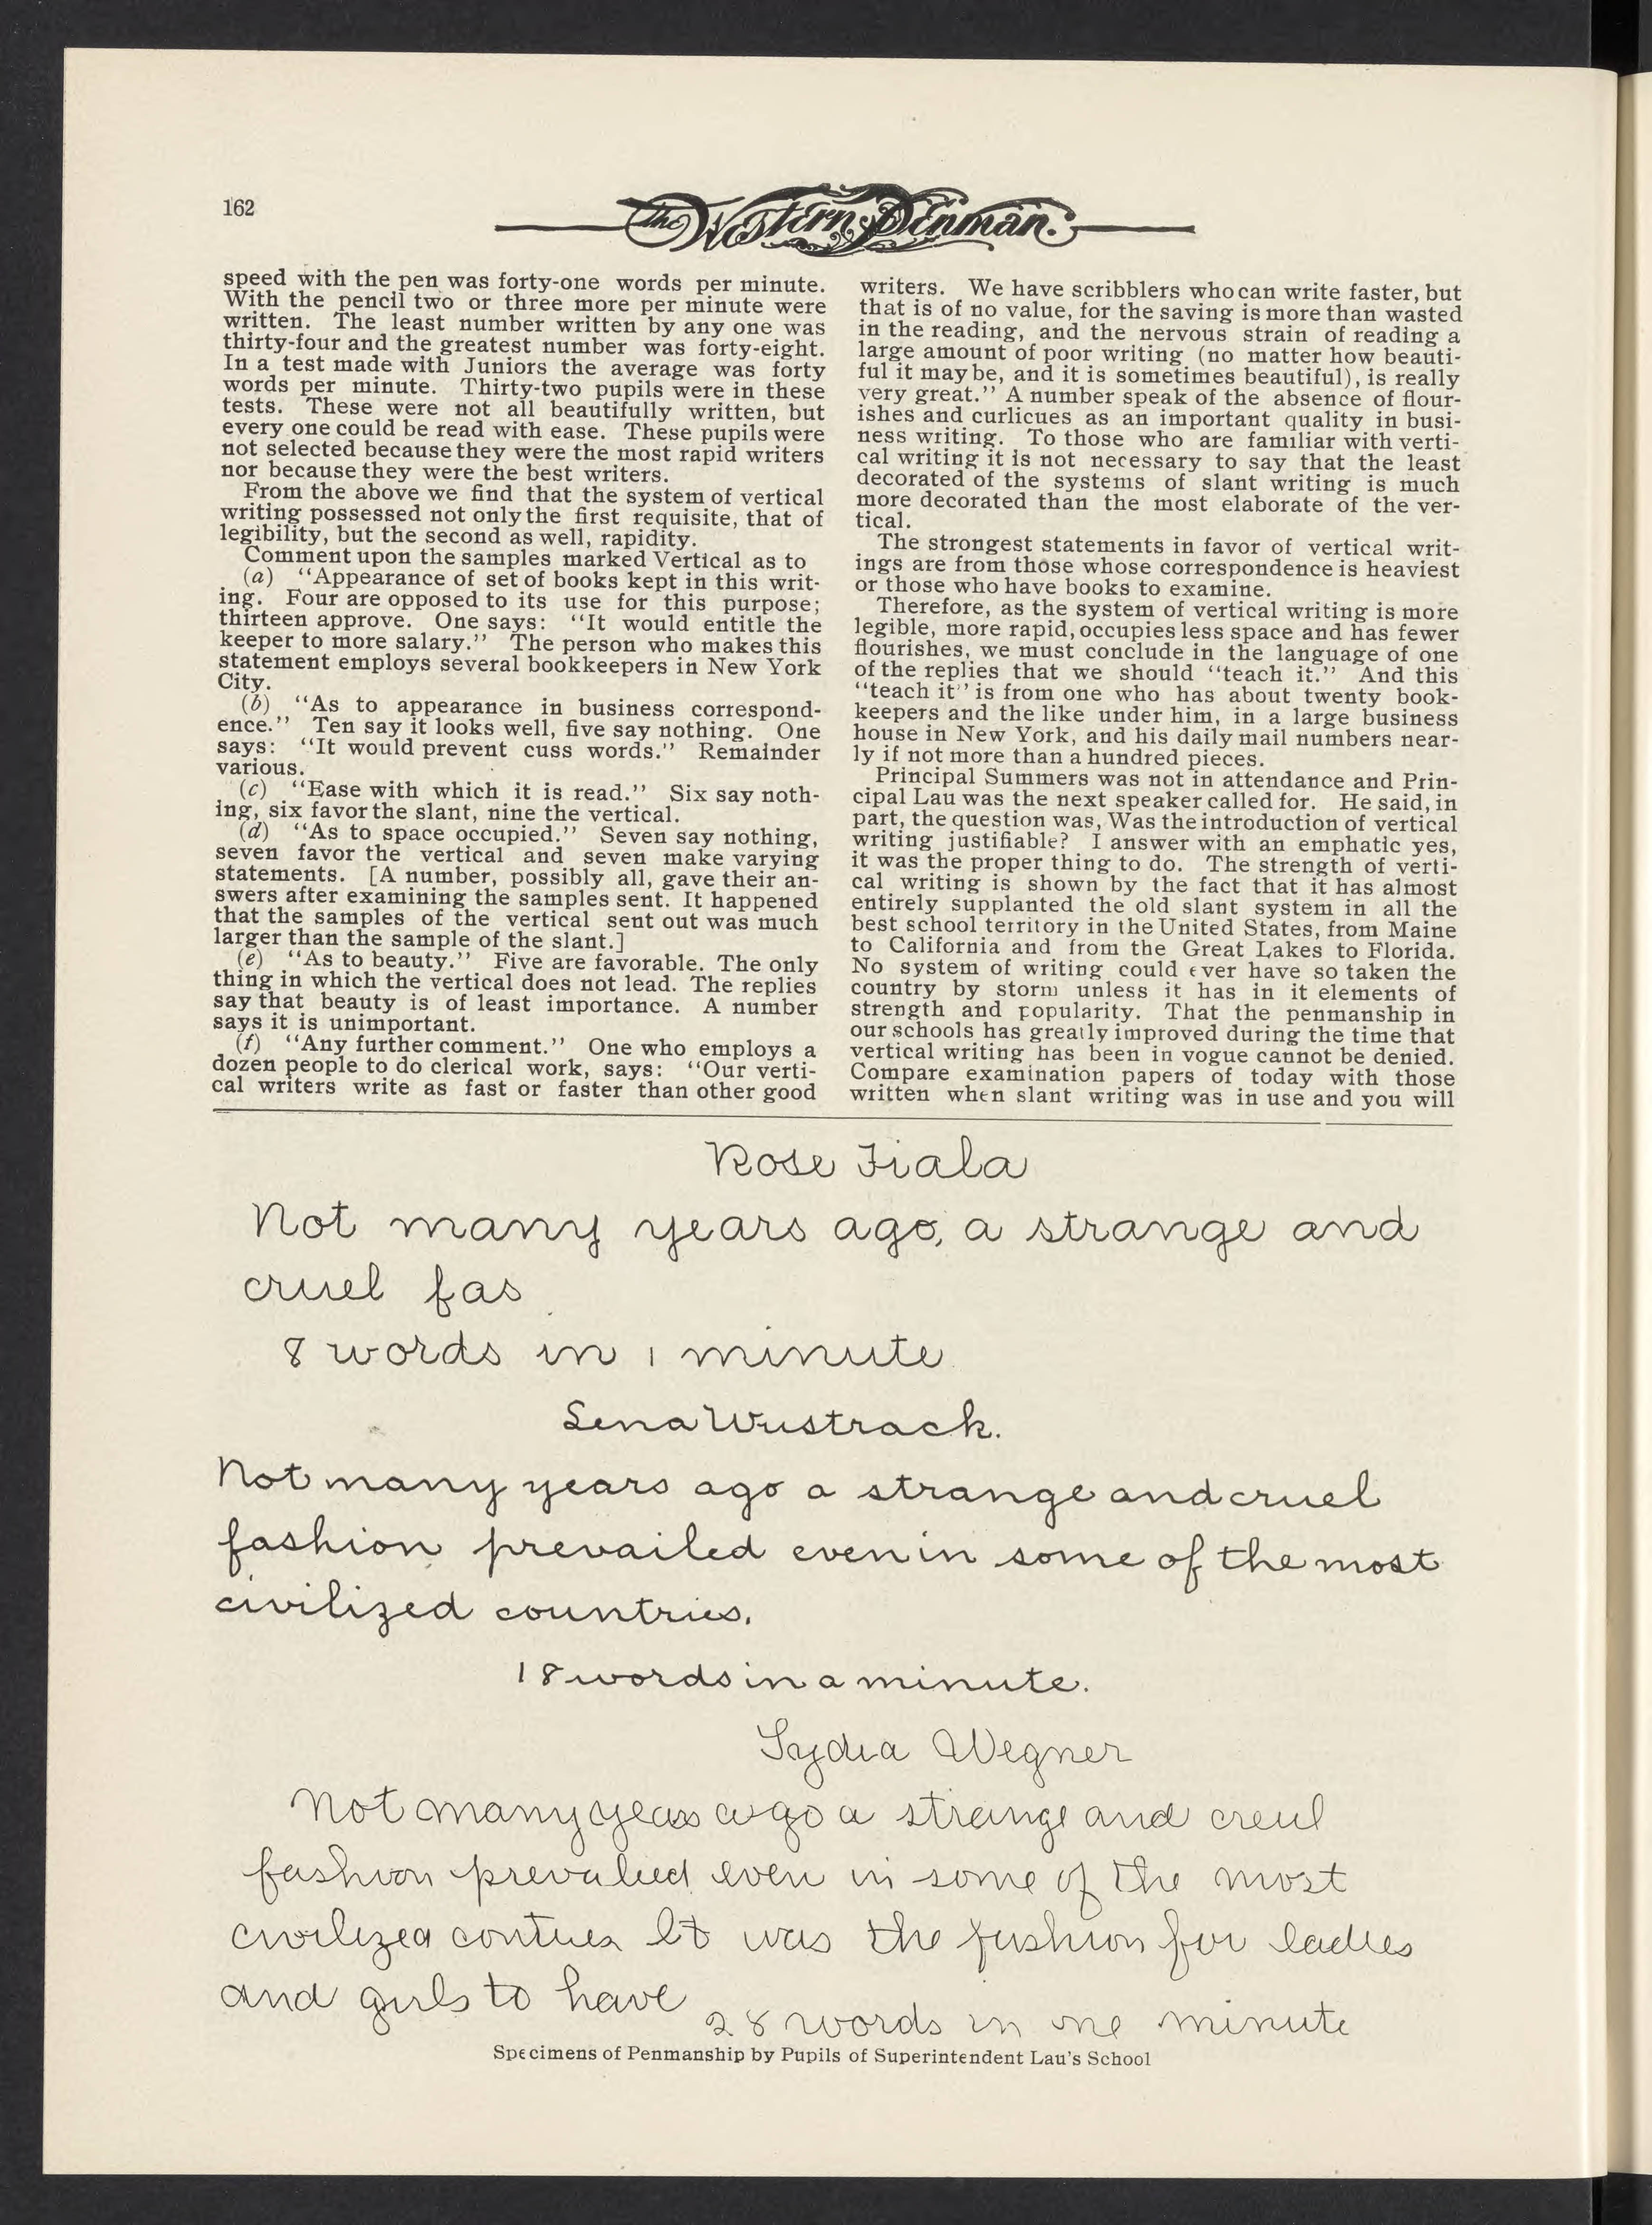 162
The Western Penman.
speed with the pen was forty-one words per minute.
With the pencil two or three more per minute were
written. The least number written by any one was
thirty-four and the greatest number was forty-eight.
In a test made with Juniors the average was forty
words per minute. Thirty-two pupils were in these
tests. These were not all beautifully written, but
every one could be read with ease. These pupils were
not selected because they were the most rapid writers
nor because they were the best writers.
From the above we find that the system of vertical
writing possessed not only the first requisite, that of
legibility, but the second as well, rapidity.
Comment upon the samples marked Vertical as to
(a) "Appearance of set of books kept in this writ-
ing. Four are opposed to its use for this purpose;
thirteen approve. One says: "It would entitle the
keeper to more salary." The person who makes this
statement employs several bookkeepers in New York
City.
(b) "As to appearance in business correspond-
ence." Ten say it looks well, five say nothing. One
says: "It would prevent cuss words." Remainder
various.
(c) "Ease with which it is read." Six say noth-
ing, six favor the slant, nine the vertical.
(d) "As to space occupied." Seven say nothing,
seven favor the vertical and seven make varying
statements. [A number, possibly all, gave their an-
swers after examining the samples sent. It happened
that the samples of the vertical sent out was much
larger than the sample of the slant.]
(e) "As to beauty." Five are favorable. The only
thing in which the vertical does not lead. The replies
say that beauty is of least importance. A number
says it is unimportant.
(f) "Any further comment." One who employs a
dozen people to do clerical work, says: "Our verti-
cal writers write as fast or faster than other good
writers. We have scribblers who can write faster, but
that is of no value, for the saving is more than wasted
in the reading, and the nervous strain of reading a
large amount of poor writing (no matter how beauti-
ful it may be, and it is sometimes beautiful), is really
very great." A number speak of the absence of flour-
ishes and curlicues as an important quality in busi-
ness writing. To those who are familiar with verti-
cal writing it is not necessary to say that the least
decorated of the systems of slant writing is much
more decorated than the most elaborate of the ver-
tical.
The strongest statements in favor of vertical writ-
ings are from those whose correspondence is heaviest
or those who have books to examine.
Therefore, as the system of vertical writing is more
legible, more rapid, occupies less space and has fewer
flourishes, we must conclude in the language of one
of the replies that we should "teach it." And this
"teach it" is from one who has about twenty book-
keepers and the like under him, in a large business
house in New York, and his daily mail numbers near-
ly if not more than a hundred pieces.
Principal Summers was not in attendance and Prin-
cipal Lau was the next speaker called for. He said, in
part, the question was, Was the introduction of vertical
writing justifiable? I answer with an emphatic yes,
it was the proper thing to do. The strength of verti-
cal writing is shown by the fact that it has almost
entirely supplanted the old slant system in all the
best school territory in the United States, from Maine
to California and from the Great Lakes to Florida.
No system of writing could ever have so taken the
country by storm unless it has in it elements of
strength and popularity. That the penmanship in
our schools has greatly improved during the time that
vertical writing has been in vogue cannot be denied.
Compare examination papers of today with those
written when slant writing was in use and you will
Rose Fiala
Not many years ago, a strange and
cruel fas
8 words in 1 minute
Lena Wustrack.
Not many years ago a strange and cruel
fashion prevailed even in some of the most
civilized countries.
18 words in a minute.
Lydia Wegner
Not many yeas ago a strange and creul
fashion prevalied even in some of the most
civilized contries It was the fashion for ladies
and girls to have
28 words in one minute
Specimens of Penmanship by Pupils of Superintendent Lau's School